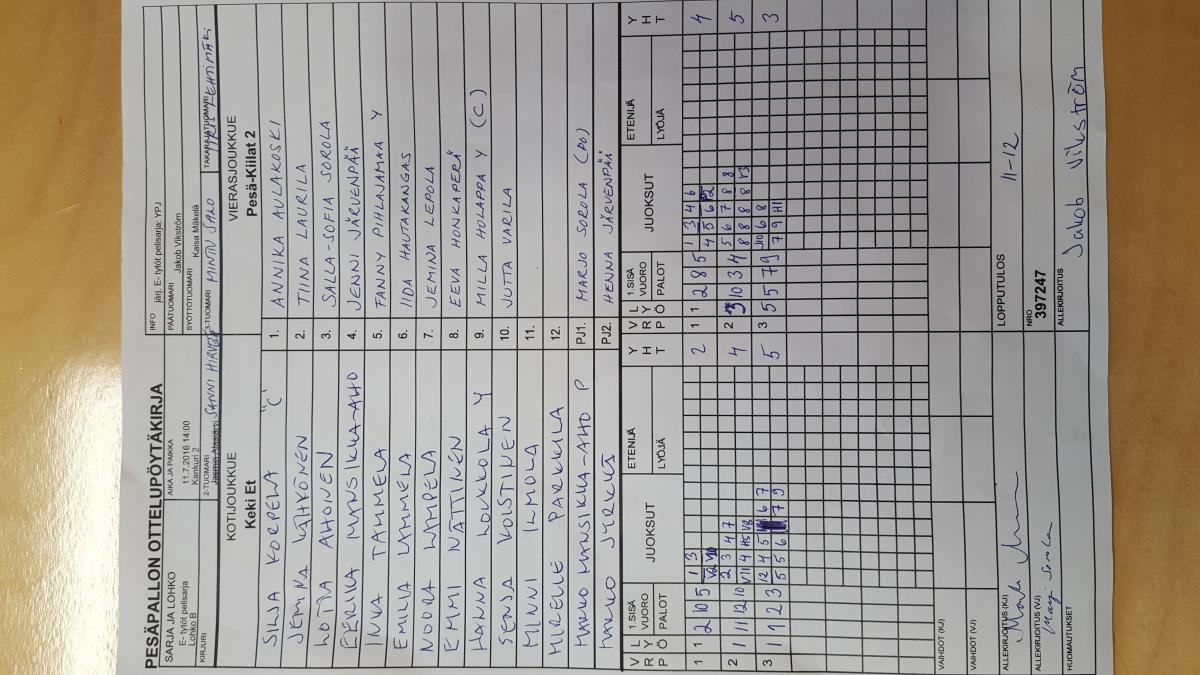 PESÄPALLON OTTELUPÖYTÄKIRJA
SARJA JA LOHKO
E- tytöt pelisarja
Lohko B
AIKA JA PAIKKA
11.7.2016 14:00
Kankuri 2
INFO järj. E- tytöt pelisarja: YPJ
PÄÄTUOMARI Jakob Vikström
SYÖTTÖTUOMARI Kaisa Mäkelä
KIRJURI
2-TUOMARI
SANNI
3-TUOMARI MINTTU SALO
TAKARAJATUOMARI
LEHTIMÄKI
KOTIJOUKKUE
Keki Et
VIERASJOUKKUE
Pesä-Kiilat 2
SILJA KORPELA "C" 1. ANNIKA AULAKOSKI
JEMINA 2. TIINA LAURILA
LOTTA AHONEN 3. SALLA-SOFIA SOROLA
EERIKA MANSIKKA-AHO 4. JENNI JÄRVENPÄÄ
INKA TAMMELA 5. FANNY PIHLAJAMAA Y
EMILIA LAMMELA 6. IIDA HAUTAKANGAS
NOORA LAMPELA 7. JEMINA LEPOLA
EMMI NÄTTINEN 8. EEVA HONKAPERÄ
HANNA LOUKKOLA Y 9. MILLA HOLAPPA Y (C)
SENJA KOISTINEN 10. JUTTA VARILA
MINNI ILMOLA 11.
MIRELLE PARKKILA 12.
MARKO MANSIKKA-AHO P PJ1. MARJO SOROLA (PO)
MARKO PJ2. HENNA JÄRVENPÄÄ
V R L Y Ö 1.SISÄ VUORO PALOT JUOKSUT ETENIJÄ LYÖJÄ Y H T V R L Y Ö 1.SISÄ VUORO PALOT JUOKSUT ETENIJÄ LYÖJÄ Y H T
1 1 2 10 5 1 3 2 1 1 2 8 5 1 3 4 6 4
4 5 6
2 1 11 12 10 2 3 4 7 4 2 10 3 4 5 6 7 8 8 5
V11 4 H5 8 8 8 8 V3
3 1 1 2 3 12 4 5 6 7 5 3 5 5 7 9 6 8 3
5 5 6 7 9 7 9 H1
VAIHDOT (KJ)
VAIHDOT (VJ)
ALLEKIRJOITUS (KJ)
LOPPUTULOS 11-12
ALLEKIRJOITUS (VJ)
NRO
397247
HUOMAUTUKSET
ALLEKIRJOITUS Jakob Vikström